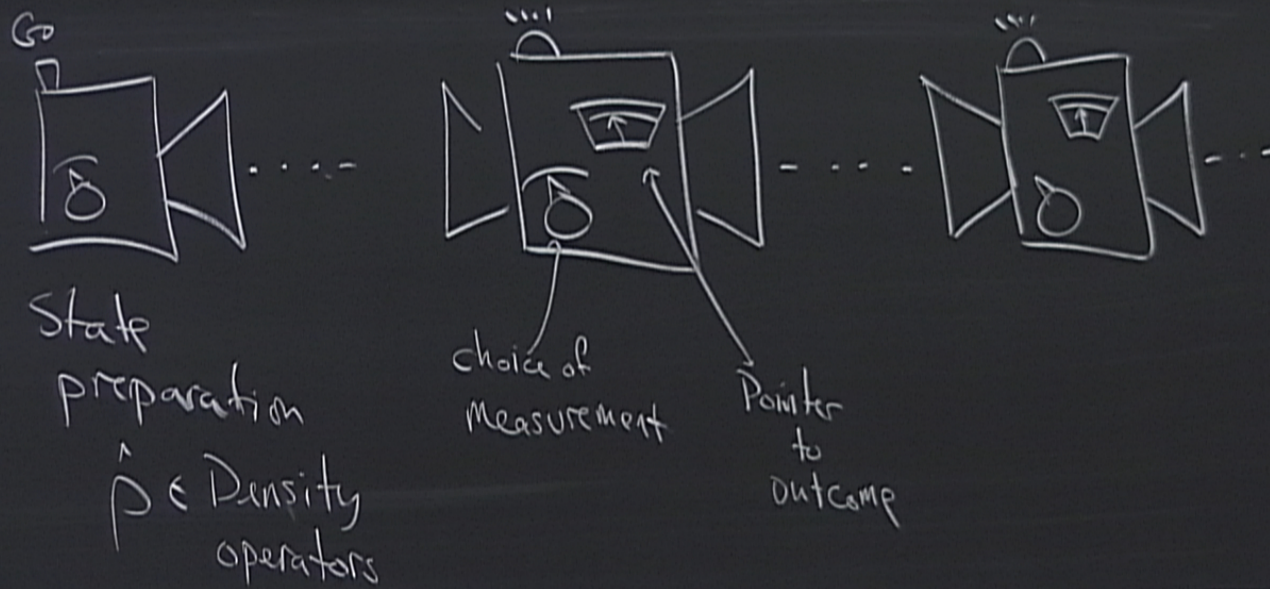 Go
State
preparation
ρ̂ ∈ Density
operators
choice of
measurement
Pointer
to
outcome